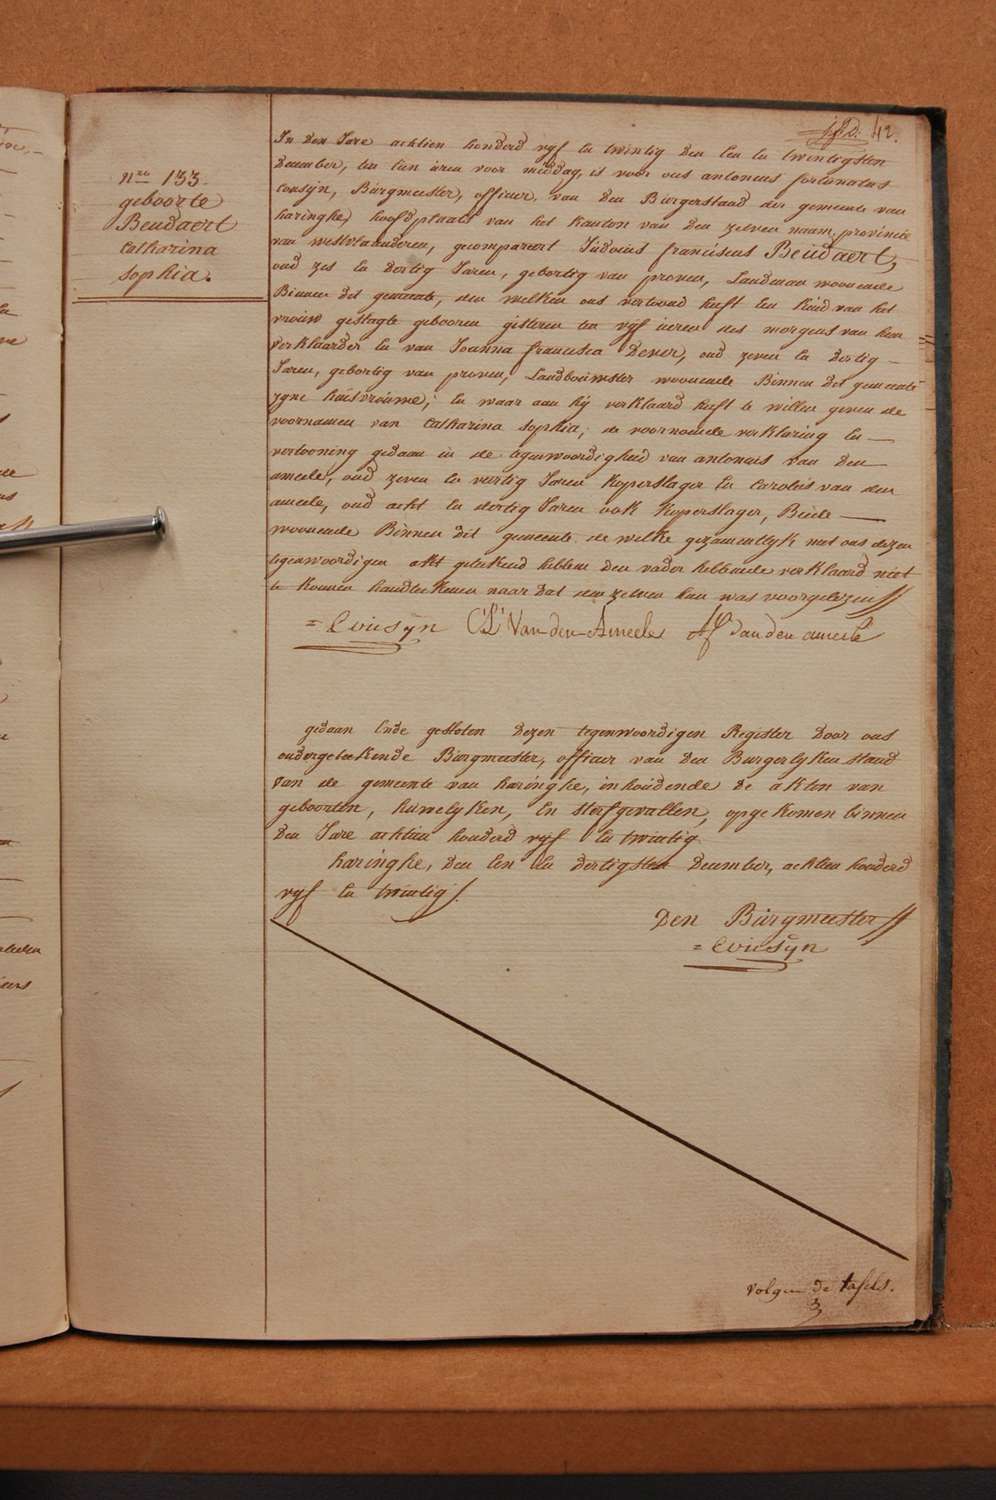 42.
nro 133.
geboorte
Beudaert
Catharina
sophia.
In den Jare achtien honderd vyf en twintig den een en twintigsten
december, ten tien uren voor middag, is voor ons antonius fortunatus
Cousyn, Burgmeester, officier van den Burgerstand der gemeente van
haringhe, hoofdplaats van het kanton van den zelven naam, provincie
van westvlaanderen, gecompareert Judocus franciscus Beudaert,
oud zes en dertig Jaren, gebortig van proven, Landman woonende
Binnen dit gemeente, den welken ons vertoond heeft een kind van het
vrouw geslagte gebooren gisteren ten vyf ueren des morgens van hem
verklaarder en van Joanna francisca Dever, oud zeven en dertig
Jaren, gebortig van proven, Landbouwster woonende Binnen dit gemeente
zyne huisvrouwe; en waar aan hy verklaard heeft te willen geven de
voornamen van Catharina sophia; de voornoemde verklaring en
vertooning gedaan in de tegenwoordigheid van antonius van den
ameele, oud zeven en veertig Jaren koperslager en Carolus van den
ameele, oud acht en dertig Jaren ook koperslager, Beide
woonende Binnen dit gemeente. de welke gezamentlyk met ons dezen
tegenwoordigen akt geteekend hebben den vader hebbende verklaard niet
te konnen handteekenen naar dat den zelven hun was voorgelezen
= Cousyn C: L: Van den Ameele AF Van den ameele
gedaan Ende gesloten dezen tegenwoordigen Register door ons
ondergeteekende Burgmeester, officier van den Burgerlyken stand
van de gemeente van haringhe, inhoudende de akten van
geboorten, huwelyken, en sterfgevallen, opgekomen binnen
den Jare achtien honderd vyf en twintig
haringhe, den een en dertigsten december, achtien honderd
vyf en twintig.
Den Burgmeester
= Cousyn
volgen de tafels.